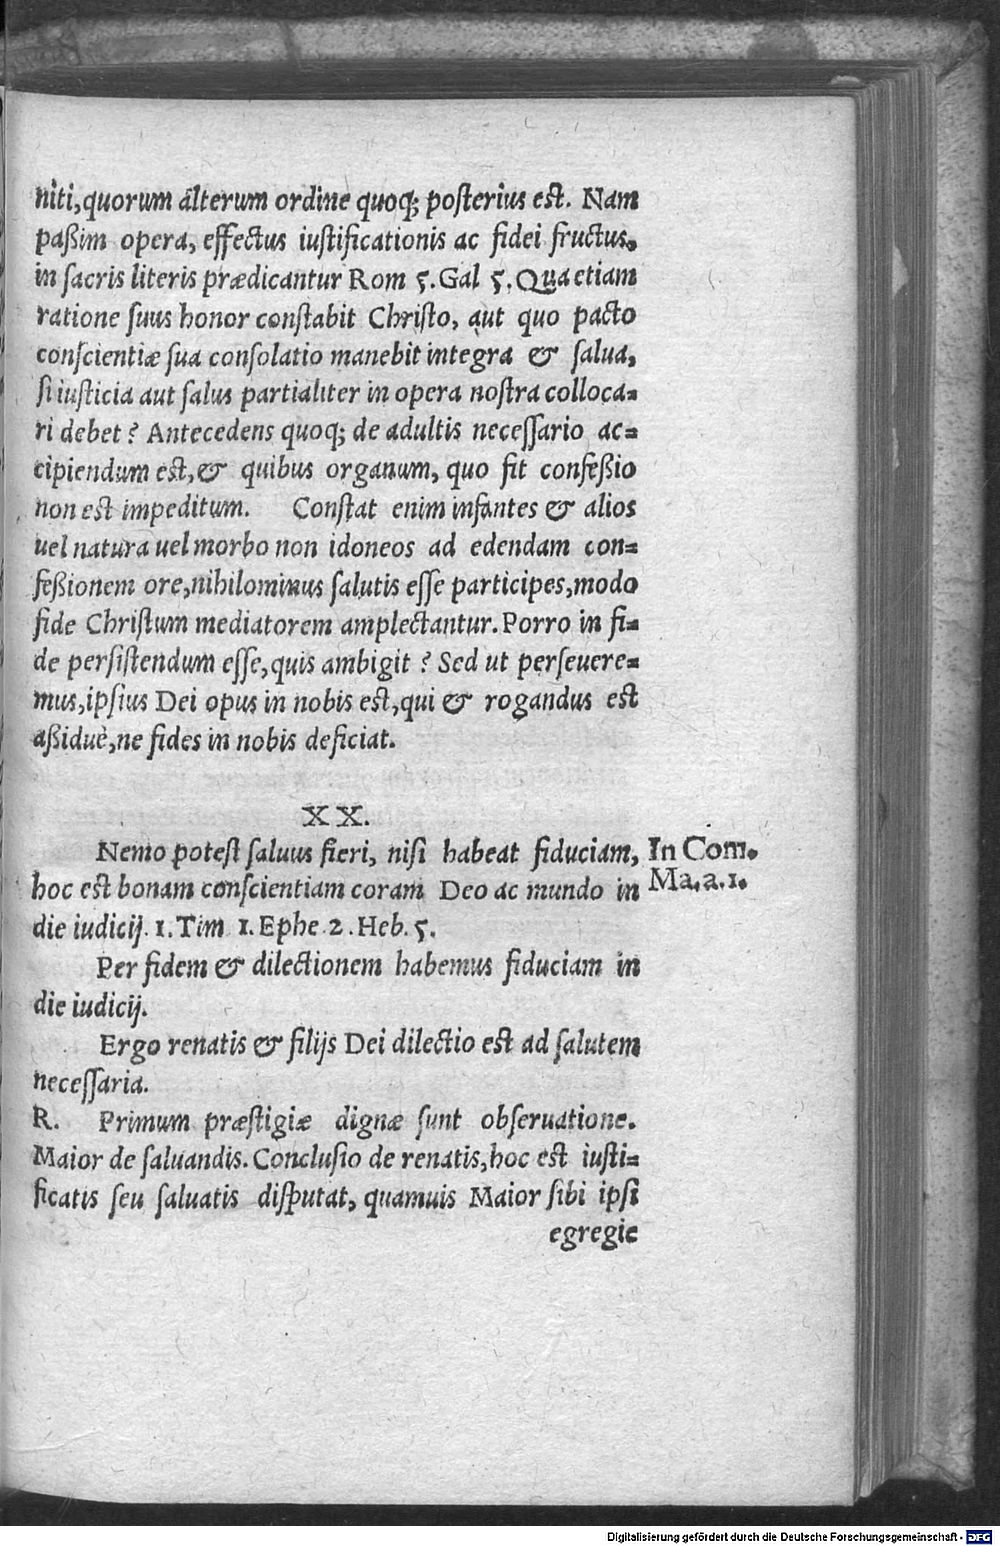 niti, quorum alterum ordine quoq; posterius est. Nam
paßim opera, effectus iustificationis ac fidei fructus,
in sacris literis prædicantur Rom 5. Gal 5. Qua etiam
ratione suus honor constabit Christo, aut quo pacto
conscientiæ sua consolatio manebit integra & salua,
si iusticia aut salus partialiter in opera nostra colloca=
ri debet? Antecedens quoq; de adultis necessario ac=
cipiendum est, & quibus organum, quo fit confeßio
non est impeditum. Constat enim infantes & alios
uel natura uel morbo non idoneos ad edendam con=
feßionem ore, nihilominus salutis esse participes, modo
fide Christum mediatorem amplectantur. Porro in fi=
de persistendum esse, quis ambigit? Sed ut perseuere=
mus, ipsius Dei opus in nobis est, qui & rogandus est
aßiduè, ne fides in nobis deficiat.
XX.
Nemo potest saluus fieri, nisi habeat fiduciam,
In Com.
hoc est bonam conscientiam coram Deo ac mundo in
Ma. a. 1.
die iudicij. 1. Tim 1. Ephe. 2. Heb. 5.
Per fidem & dilectionem habemus fiduciam in
die iudicij.
Ergo renatis & filijs Dei dilectio est ad salutem
necessaria.
R. Primum præstigiæ dignæ sunt obseruatione.
Maior de saluandis. Conclusio de renatis, hoc est iusti=
ficatis seu saluatis disputat, quamuis Maior sibi ipsi
egregie
Digitalisierung gefördert durch die Deutsche Forschungsgemeinschaft - DFG